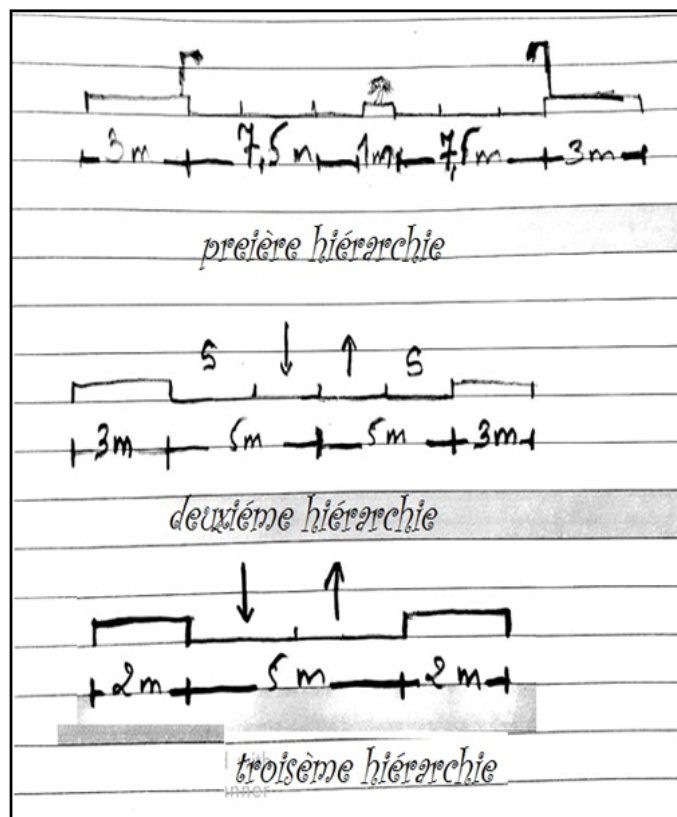 3m 7,5m 1m 7,5m 3m
preière hiérarchie
S ↓ ↑ S
3m 5m 5m 3m
deuxiéme hiérarchie
↓ ↑
2m 5m 2m
troisème hiérarchie